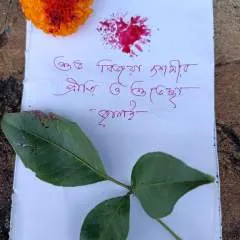 শুভ বিজয়া দশমীর
প্রীতি ও শুভেচ্ছা
জানাই